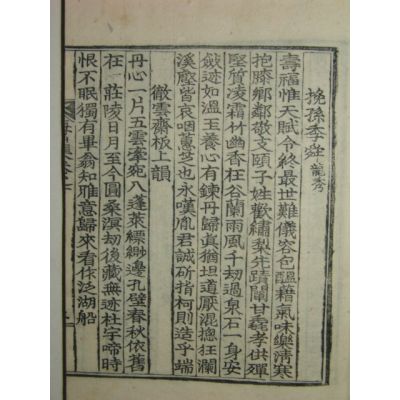 挽孫季舜 龍秀
壽福惟天賦令終最世難儀容包醞藉氣味樂清寒
抱膝鄉鄰敬支頤子姓歡繡梨先蹟闡甘毳孝供殫
堅質凌霜竹幽香在谷蘭雨風千劫過泉石一身安
斂迹如溫玉養心有鍊丹歸眞猶坦道厭混揔狂瀾
溪壑皆哀咽蕙芝也永嘆胤君誠斫指柯則造乎端
徹雲齋板上韻
丹心一片五雲牽宛入蓬萊縹緲邊孔壁春秋依舊
在 莊陵日月至今圓桑溟劫後藏無迹杜宇啼時
恨不眠獨有畢翁知雅意歸來看作泛湖船